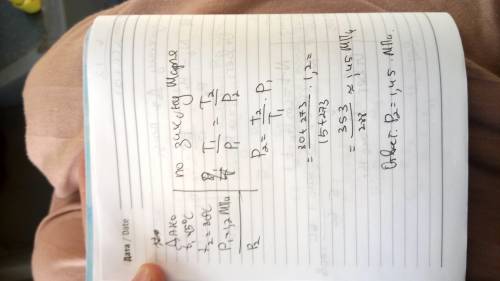 Дата / Date
Дано
t₁ = 15°C
t₂ = 80°C
P₁ = 1,2 МПа
P₂
по закону Шарля
T₁/P₁ = T₂/P₂
P₂ = T₂/T₁ · P₁
= 80+273/15+273 · 1,2 =
= 353/288 ≈ 1,45 МПа
Ответ: P₂ = 1,45 МПа.